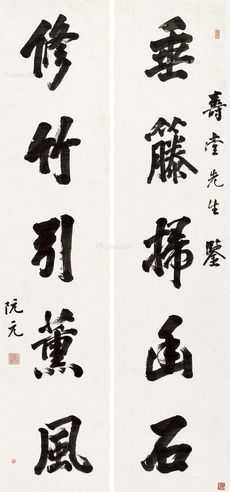 壽堂先生鑒
垂籐掃幽石
修竹引薰風
阮元